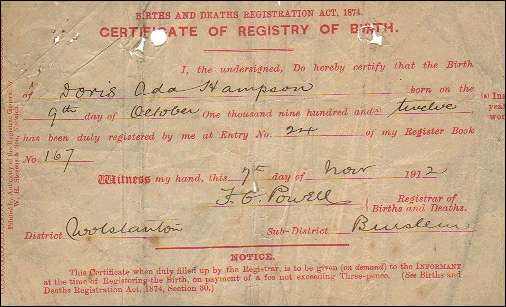 BIRTHS AND DEATHS REGISTRATION ACT, 1874.
CERTIFICATE OF REGISTRY OF BIRTH.
I, the undersigned, Do hereby certify that the Birth
of Doris Ada Hampson born on the
9th day of October One thousand nine hundred and twelve
has been duly registered by me at Entry No. 24 of my Register Book
No. 167
Witness my hand, this 7th day of Novr 1912
F. E. Powell Registrar of
Births and Deaths.
District Wolstanton Sub-District Burslem
NOTICE.
This Certificate when duly filled up by the Registrar, is to be given (on demand) to the INFORMANT
at the time of Registering the Birth, on payment of a fee not exceeding Three-pence. (See Births and
Deaths Registration Act, 1874, Section 30.)